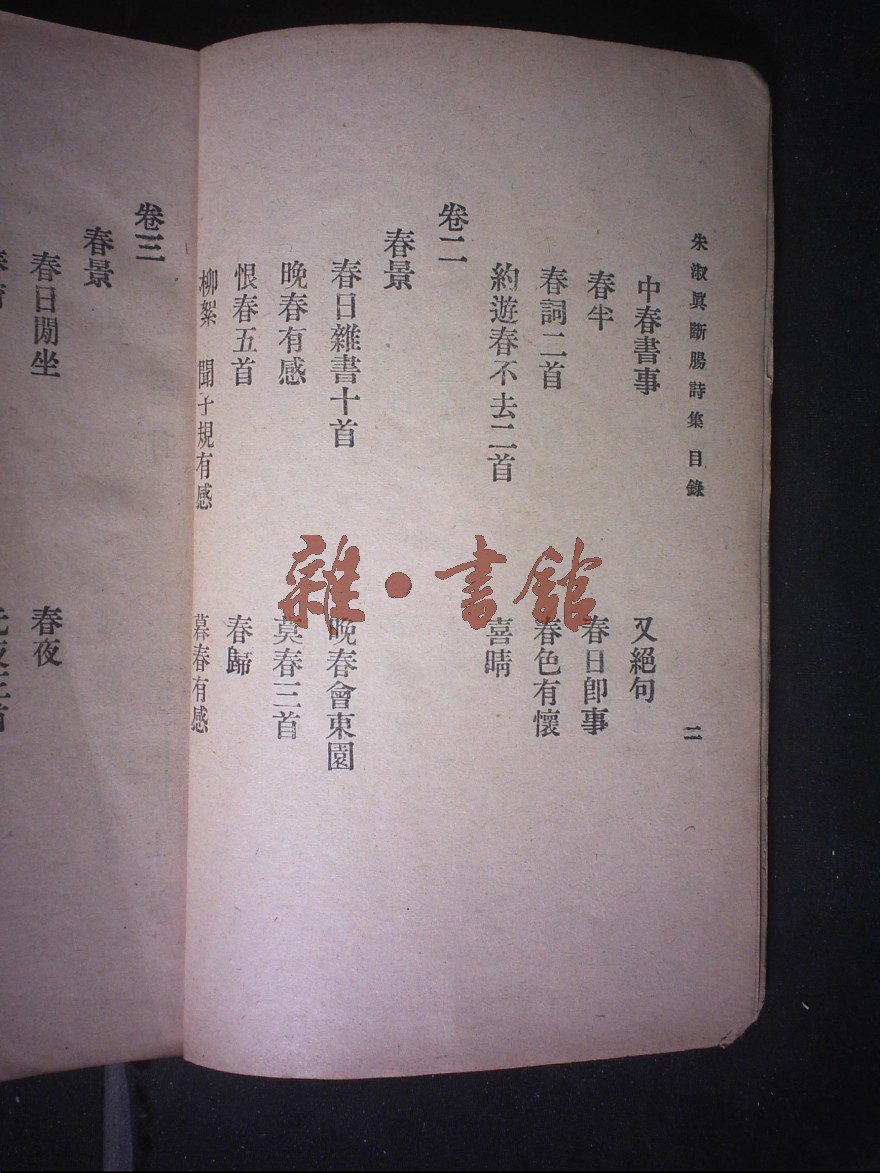 朱淑眞斷腸詩集 目錄 二
中春書事 又絕句
春半 春日卽事
春詞二首 春色有懷
約遊春不去二首 喜晴
卷二
春景
春日雜書十首 晚春會東園
晚春有感 莫春三首
恨春五首 春歸
柳絮 聞子規有感 暮春有感
卷三
春景
春日閒坐 春夜
雜·書館